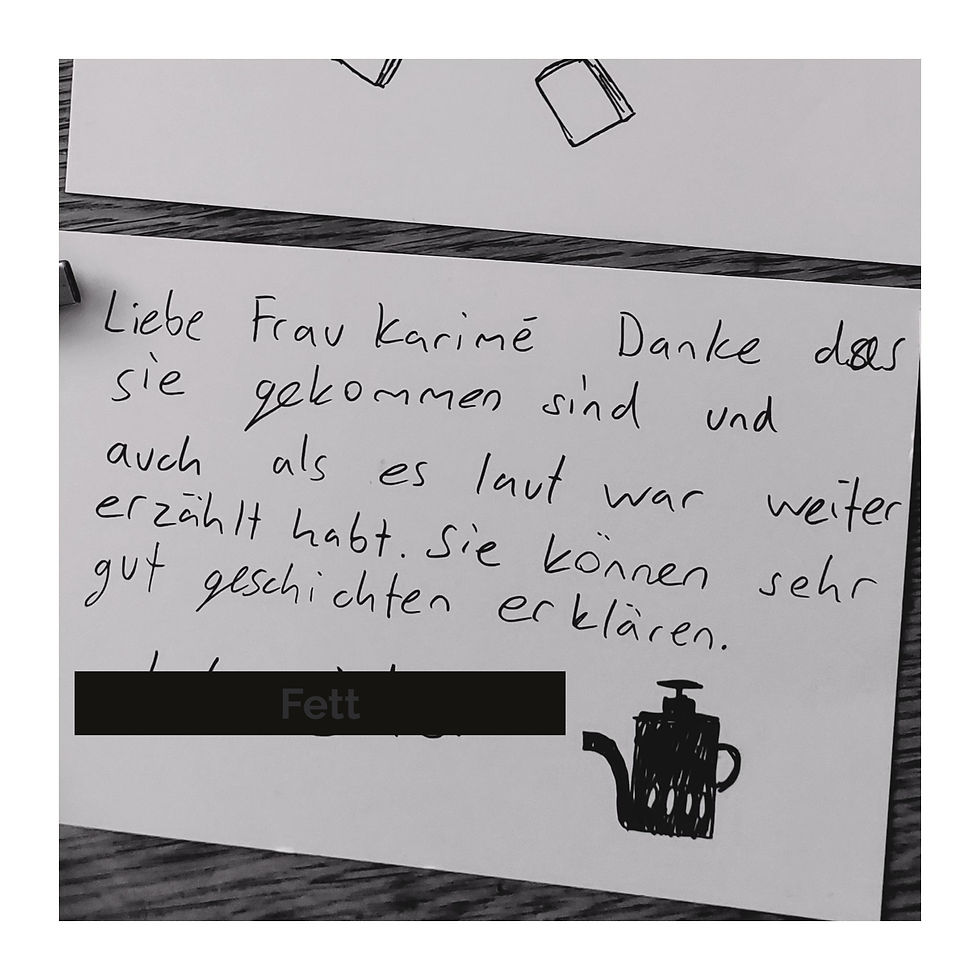 Liebe Frau Karimé Danke das
sie gekommen sind und
auch als es laut war weiter
erzählt habt. Sie können sehr
gut geschichten erklären.
Fett